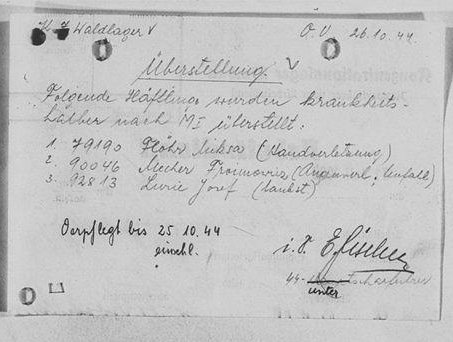 K Z Waldlager V O.U 26.10.44
Überstellung
Folgende Häftlinge wurden krankheits-
halber nach MI überstellt:
1. 79190 Flohr Miksa (Handverletzung)
2. 90046 Mecher (Augenverl., Unfall)
3. 92813 Lurie Josef (taubst)
Verpflegt bis 25 10.44
einschl.
i. A. E. Fischer
44-scharführer
unter